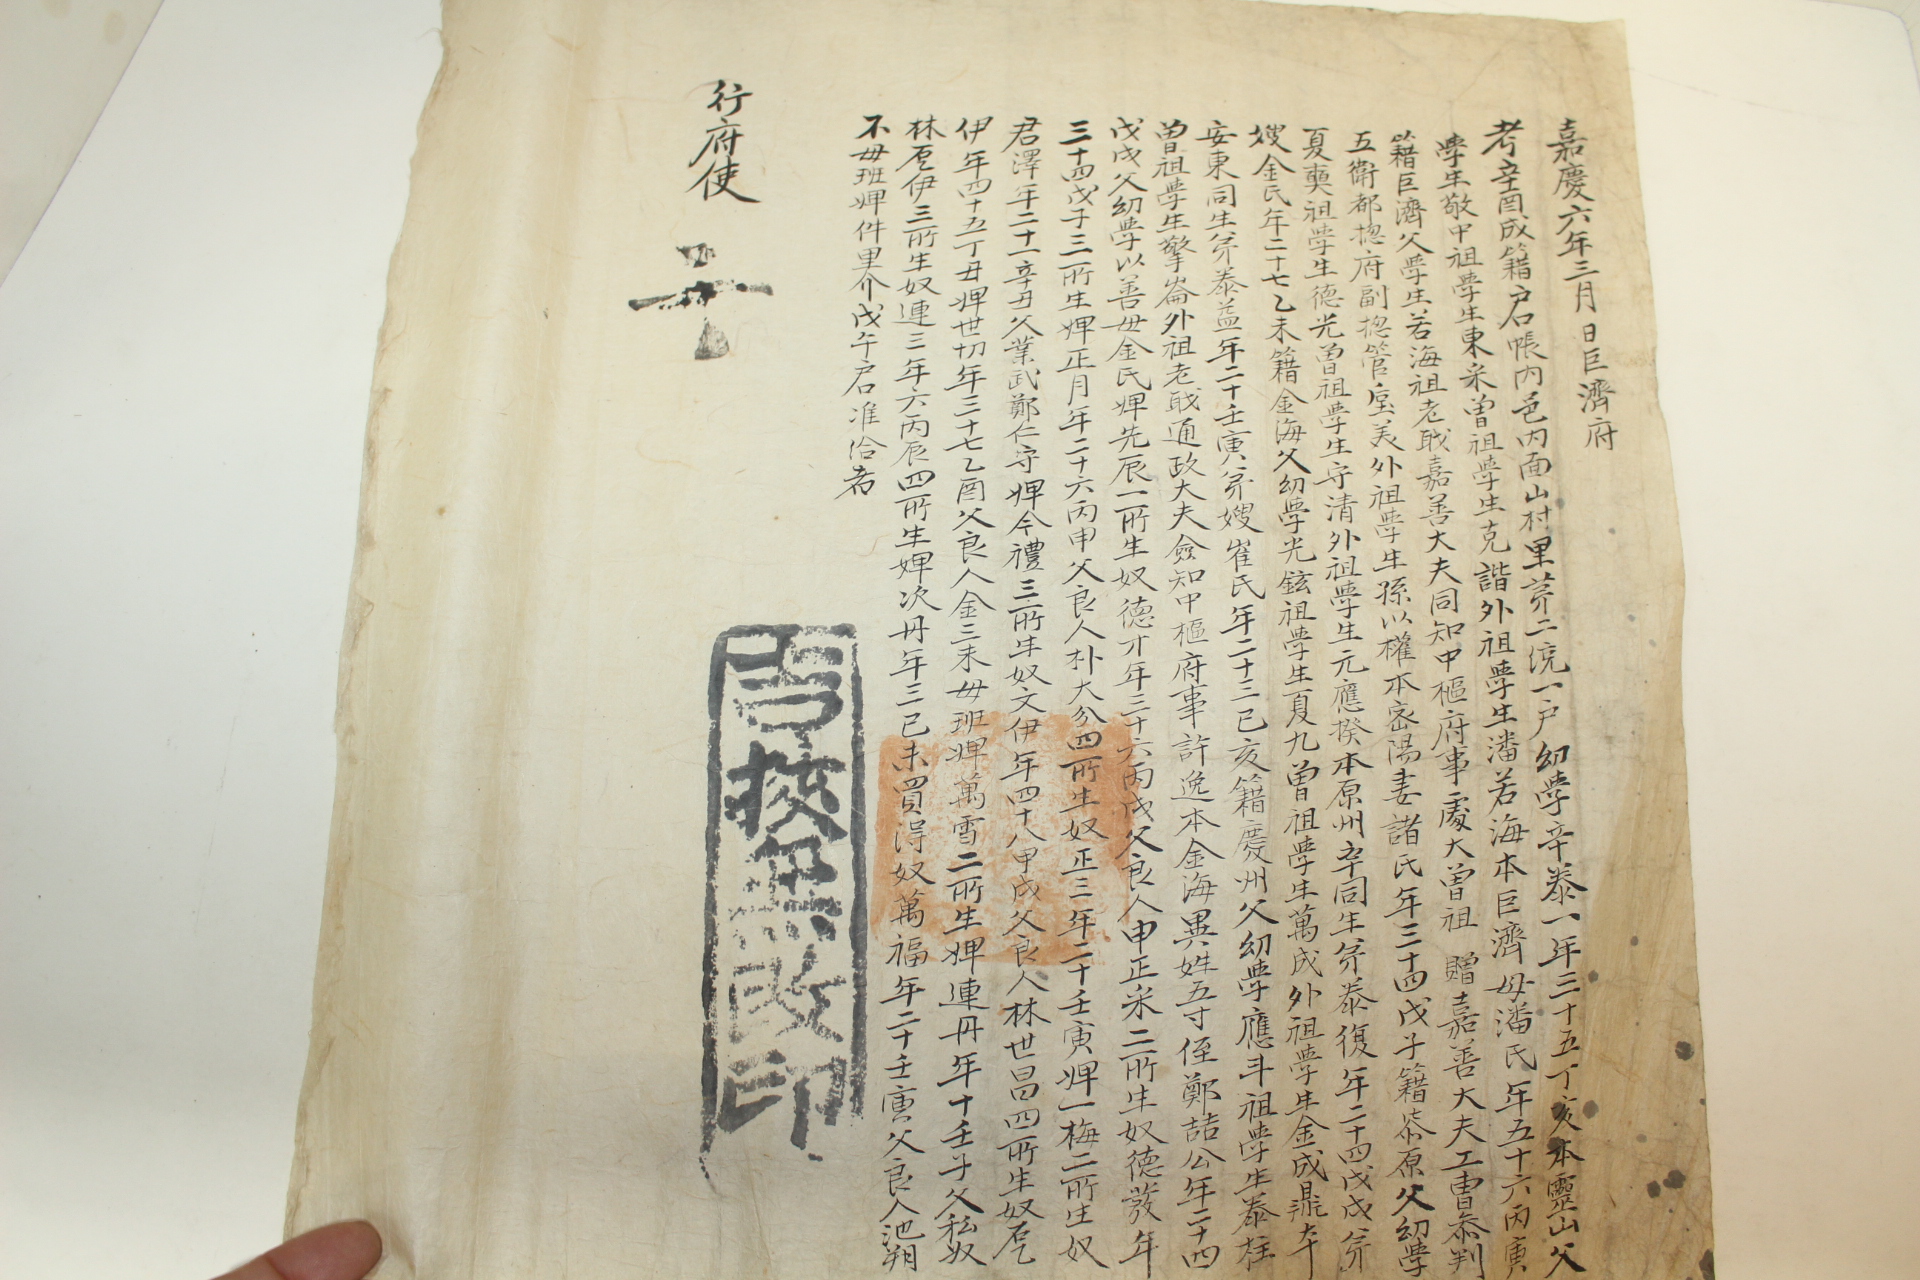 嘉慶六年三月 日巨濟府
考辛酉成籍户口帳内邑内面山村里苐二統一户幼學辛泰一年三十五丁亥本靈山父
學生敬中祖學生東采曾祖學生克諧外祖學生潘若海本巨濟母潘氏年五十六丙寅
籍巨濟父學生若海祖老職嘉善大夫同知中樞府事處大曾祖 贈嘉善大夫工曹叅判
五衛都摠府副摠管 美外祖學生孫以權本密陽妻諸氏年三十四戊子籍柒原父幼學
夏奭祖學生德光曾祖學生守清外祖學生元應揆本原州率同生苐泰復年二十四戊戌苐
嫂金氏年二十七乙未籍金海父幼學光鉉祖學生夏九曾祖學生萬成外祖學生金成鼎本
安東同生苐泰益年二十壬寅苐嫂崔氏年二十三己亥籍慶州父幼學應斗祖學生泰柱
曾祖學生擎崙外祖老職通政大夫僉知中樞府事許逸本金海異姓五寸侄鄭喆公年二十四
戊戌父幼學以善母金氏婢先辰一所生奴德才年三十六丙戌父良人申正采二所生奴德發年
三十四戊子三所生婢正月年二十六丙申父良人朴大分四所生奴正三年二十壬寅婢一梅二所生奴
君澤年二十一辛丑父業武鄭仁守婢今禮三所生奴文伊年四十八甲戌父良人林世昌四所生奴
伊年四十五丁丑婢世切年三十七乙酉父良人金三未母班婢萬雪二所生婢連丹年十壬子父私奴
林 伊三所生奴連三年六丙辰四所生婢次丹年三己未買得奴萬福年二十壬寅父良人池朔
不母班婢件里介戊午户口准給者
行府使
周挾無改印